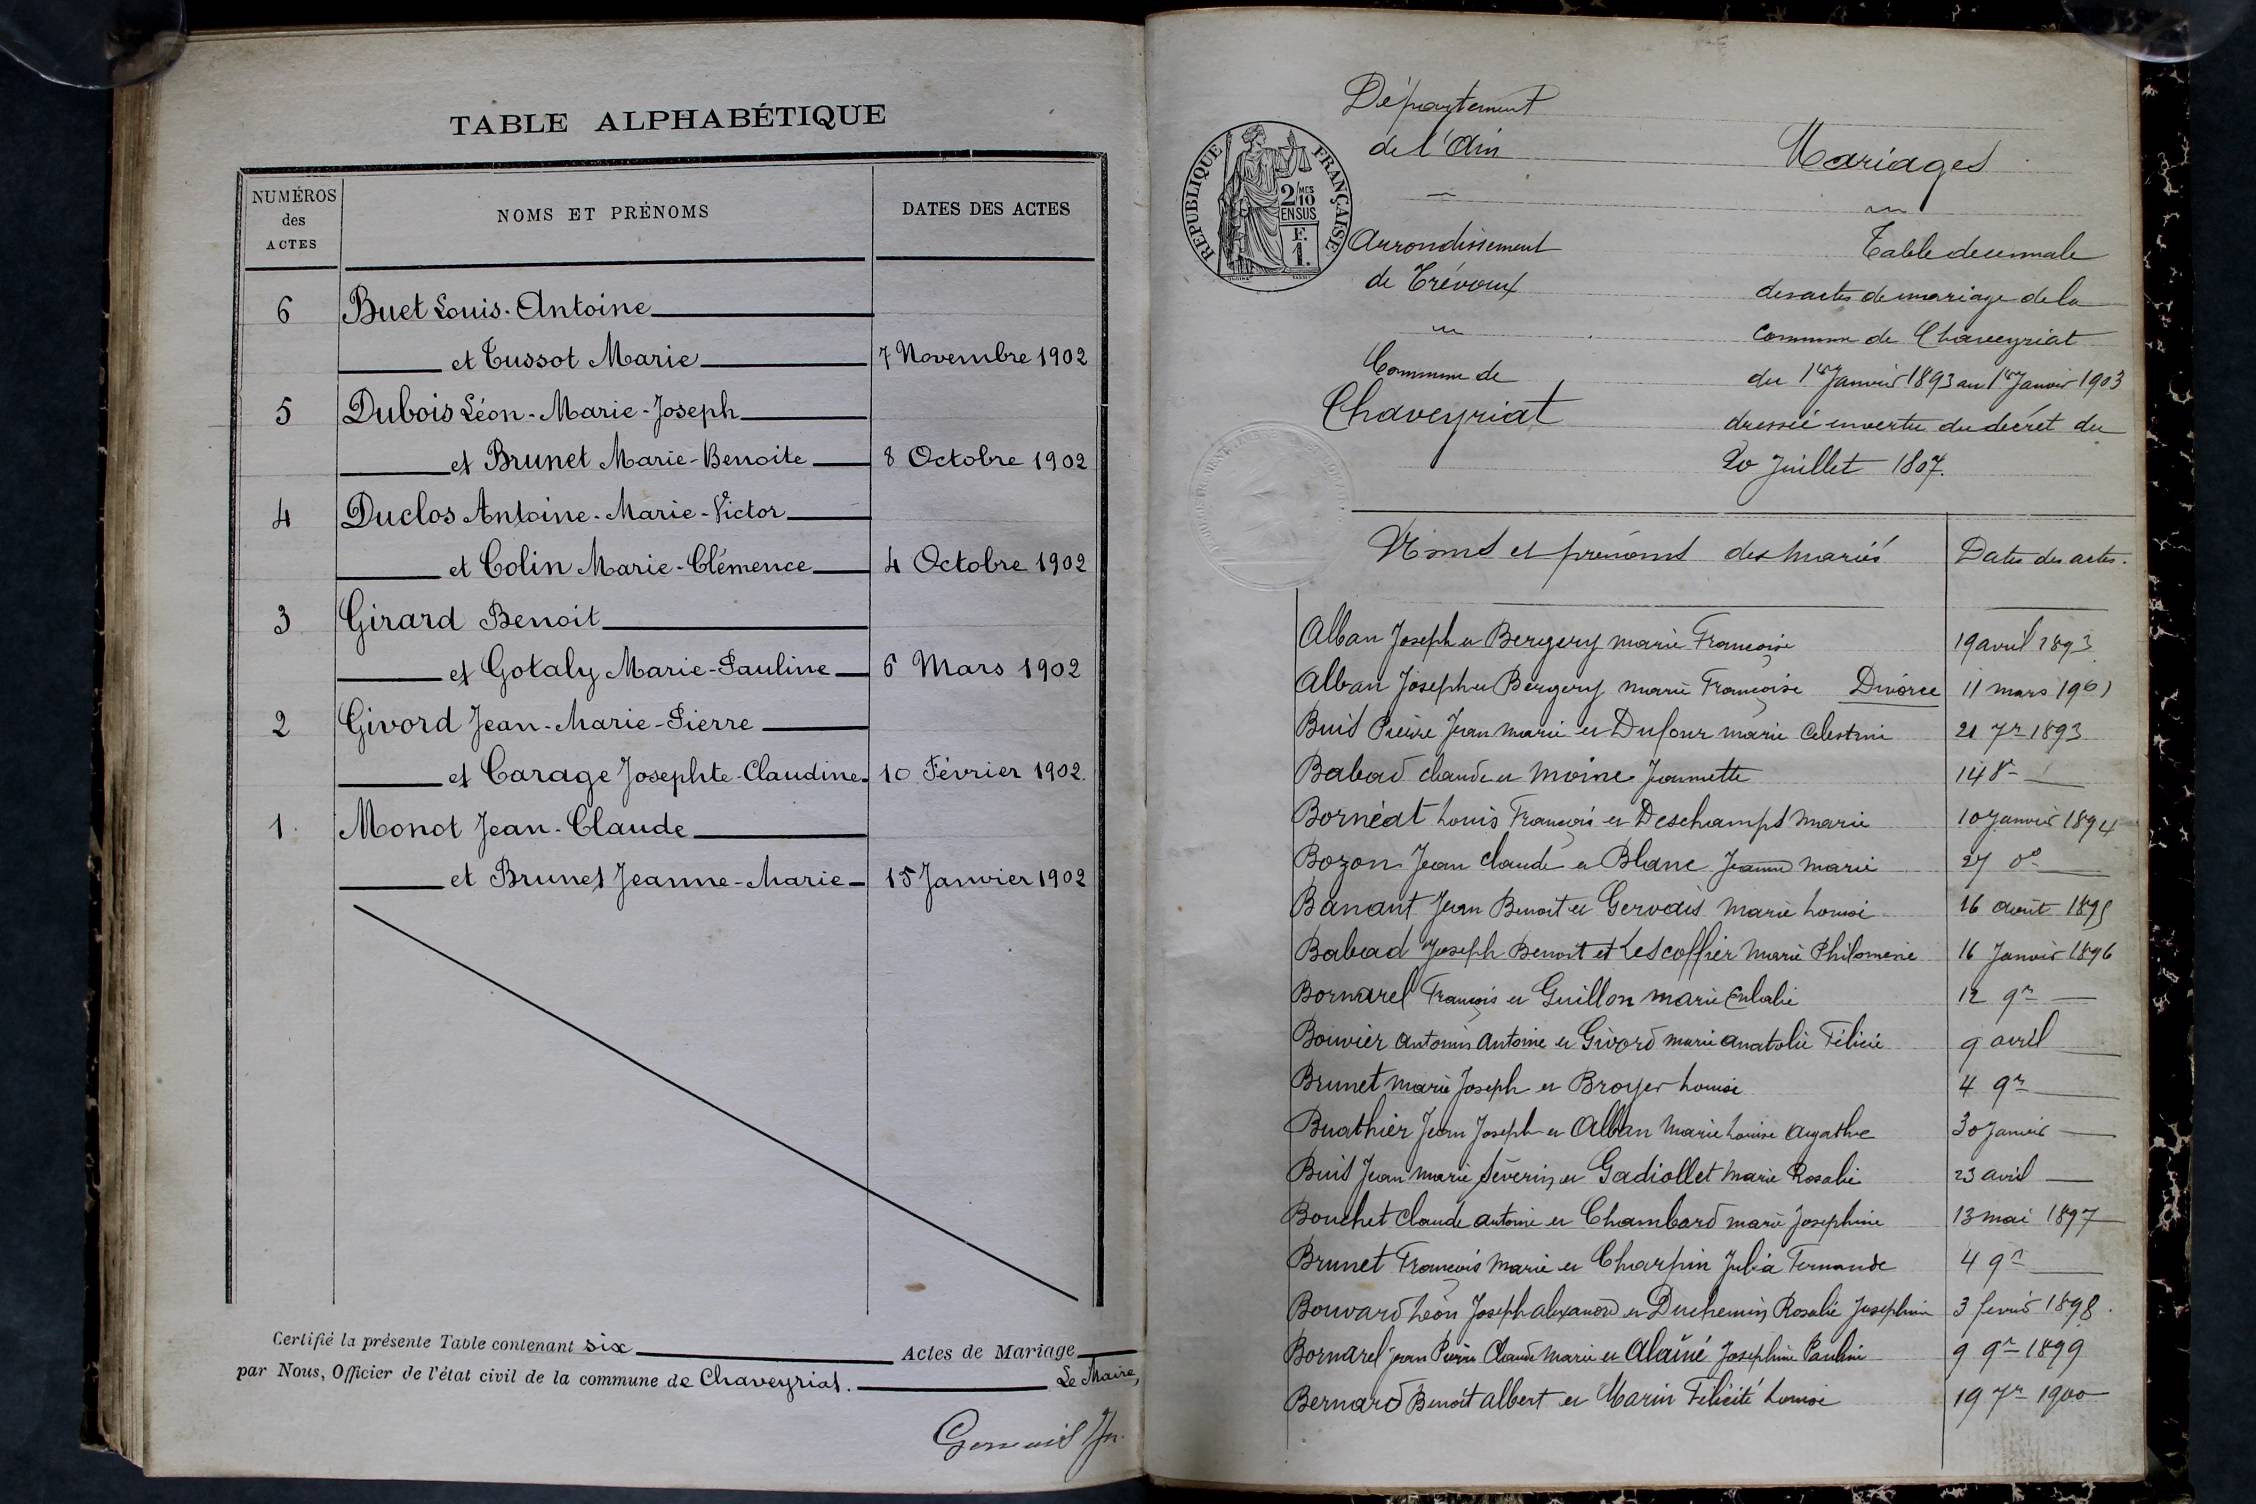 TABLE ALPHABÉTIQUE
NUMÉROS
des
ACTES
NOMS ET PRÉNOMS
DATES DES ACTES
6 Buet Louis-Antoine
et Tussot Marie 7 Novembre 1902
5 Dubois Léon-Marie-Joseph
et Brunet Marie-Benoite 8 Octobre 1902
4 Duclos Antoine-Marie-Victor
et Colin Marie-Clémence 4 Octobre 1902
3 Girard Benoit
et Gotaly Marie-Pauline 6 Mars 1902
2 Givord Jean-Marie-Pierre
et Carage Josephte-Claudine 10 Février 1902.
1 Monot Jean-Claude
et Brunet Jeanne-Marie 15 Janvier 1902
Certifié la présente Table contenant six Actes de Mariage
par Nous, Officier de l'état civil de la commune de Chaveyriat. Le Maire,
Département
de l'Ain
Arrondissement
de Trévoux
Commune de
Chaveyriat
RÉPUBLIQUE FRANÇAISE
2/10 MES
EN SUS
F.
1.
Mariages
Table decennale
des actes de mariage de la
commune de Chaveyriat
du 1er Janvier 1893 au 1er Janvier 1903
dressée en vertu du décrét du
20 Juillet 1807.
Noms et prénoms des mariés Dates des actes.
Alban Joseph et Bergery marie Francoise 19 avril 1893
Alban Joseph et Bergery marie Francoise Divorce 11 mars 1901
Buis Pierre Jean marie et Dufour marie Celestine 21 7re 1893
Babad claude et Moine Jeannette 14 8re
Bornéat Louis François et Deschamps marie 10 Janvier 1894
Bozon Jean claude et Blanc Jeanne marie 27 do
Banant Jean Benoit et Gervais Marie Louise 16 août 1895
Babad Joseph Benoit et Lescoffier Marie Philomene 16 Janvier 1896
Bornarel François et Guillon marie Eulalie 12 9re
Bouvier antonin antoine et Givord marie anatolie Félicie 9 avril
Brunet marie Joseph et Broyer Louise 4 9re
Buathier Jean Joseph et Alban Marie Louise Agathe 30 Janvier
Buis Jean marie Séverin et Gadiollet Marie Rosalie 23 avril
Bouchet claude antoine et Chambard marie Josephine 13 mai 1897
Brunet François Marie et Charpin Julia Fernande 4 9re
Bouvard Léon Joseph alexandre et Duchemin Rosalie Josephine 3 fevrier 1898.
Bornarel jean Pierre Claude Marie et Alainé Josephine Pauline 9 9re 1899
Bernard Benoit albert et Marin Félicité Louise 19 7re 1900